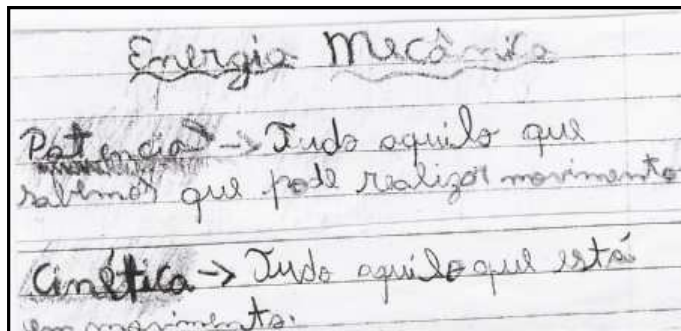 Energia Mecânica
Potencial -> Tudo aquilo que
sabemos que pode realizar movimento
Cinética -> Tudo aquilo que está
em movimento.